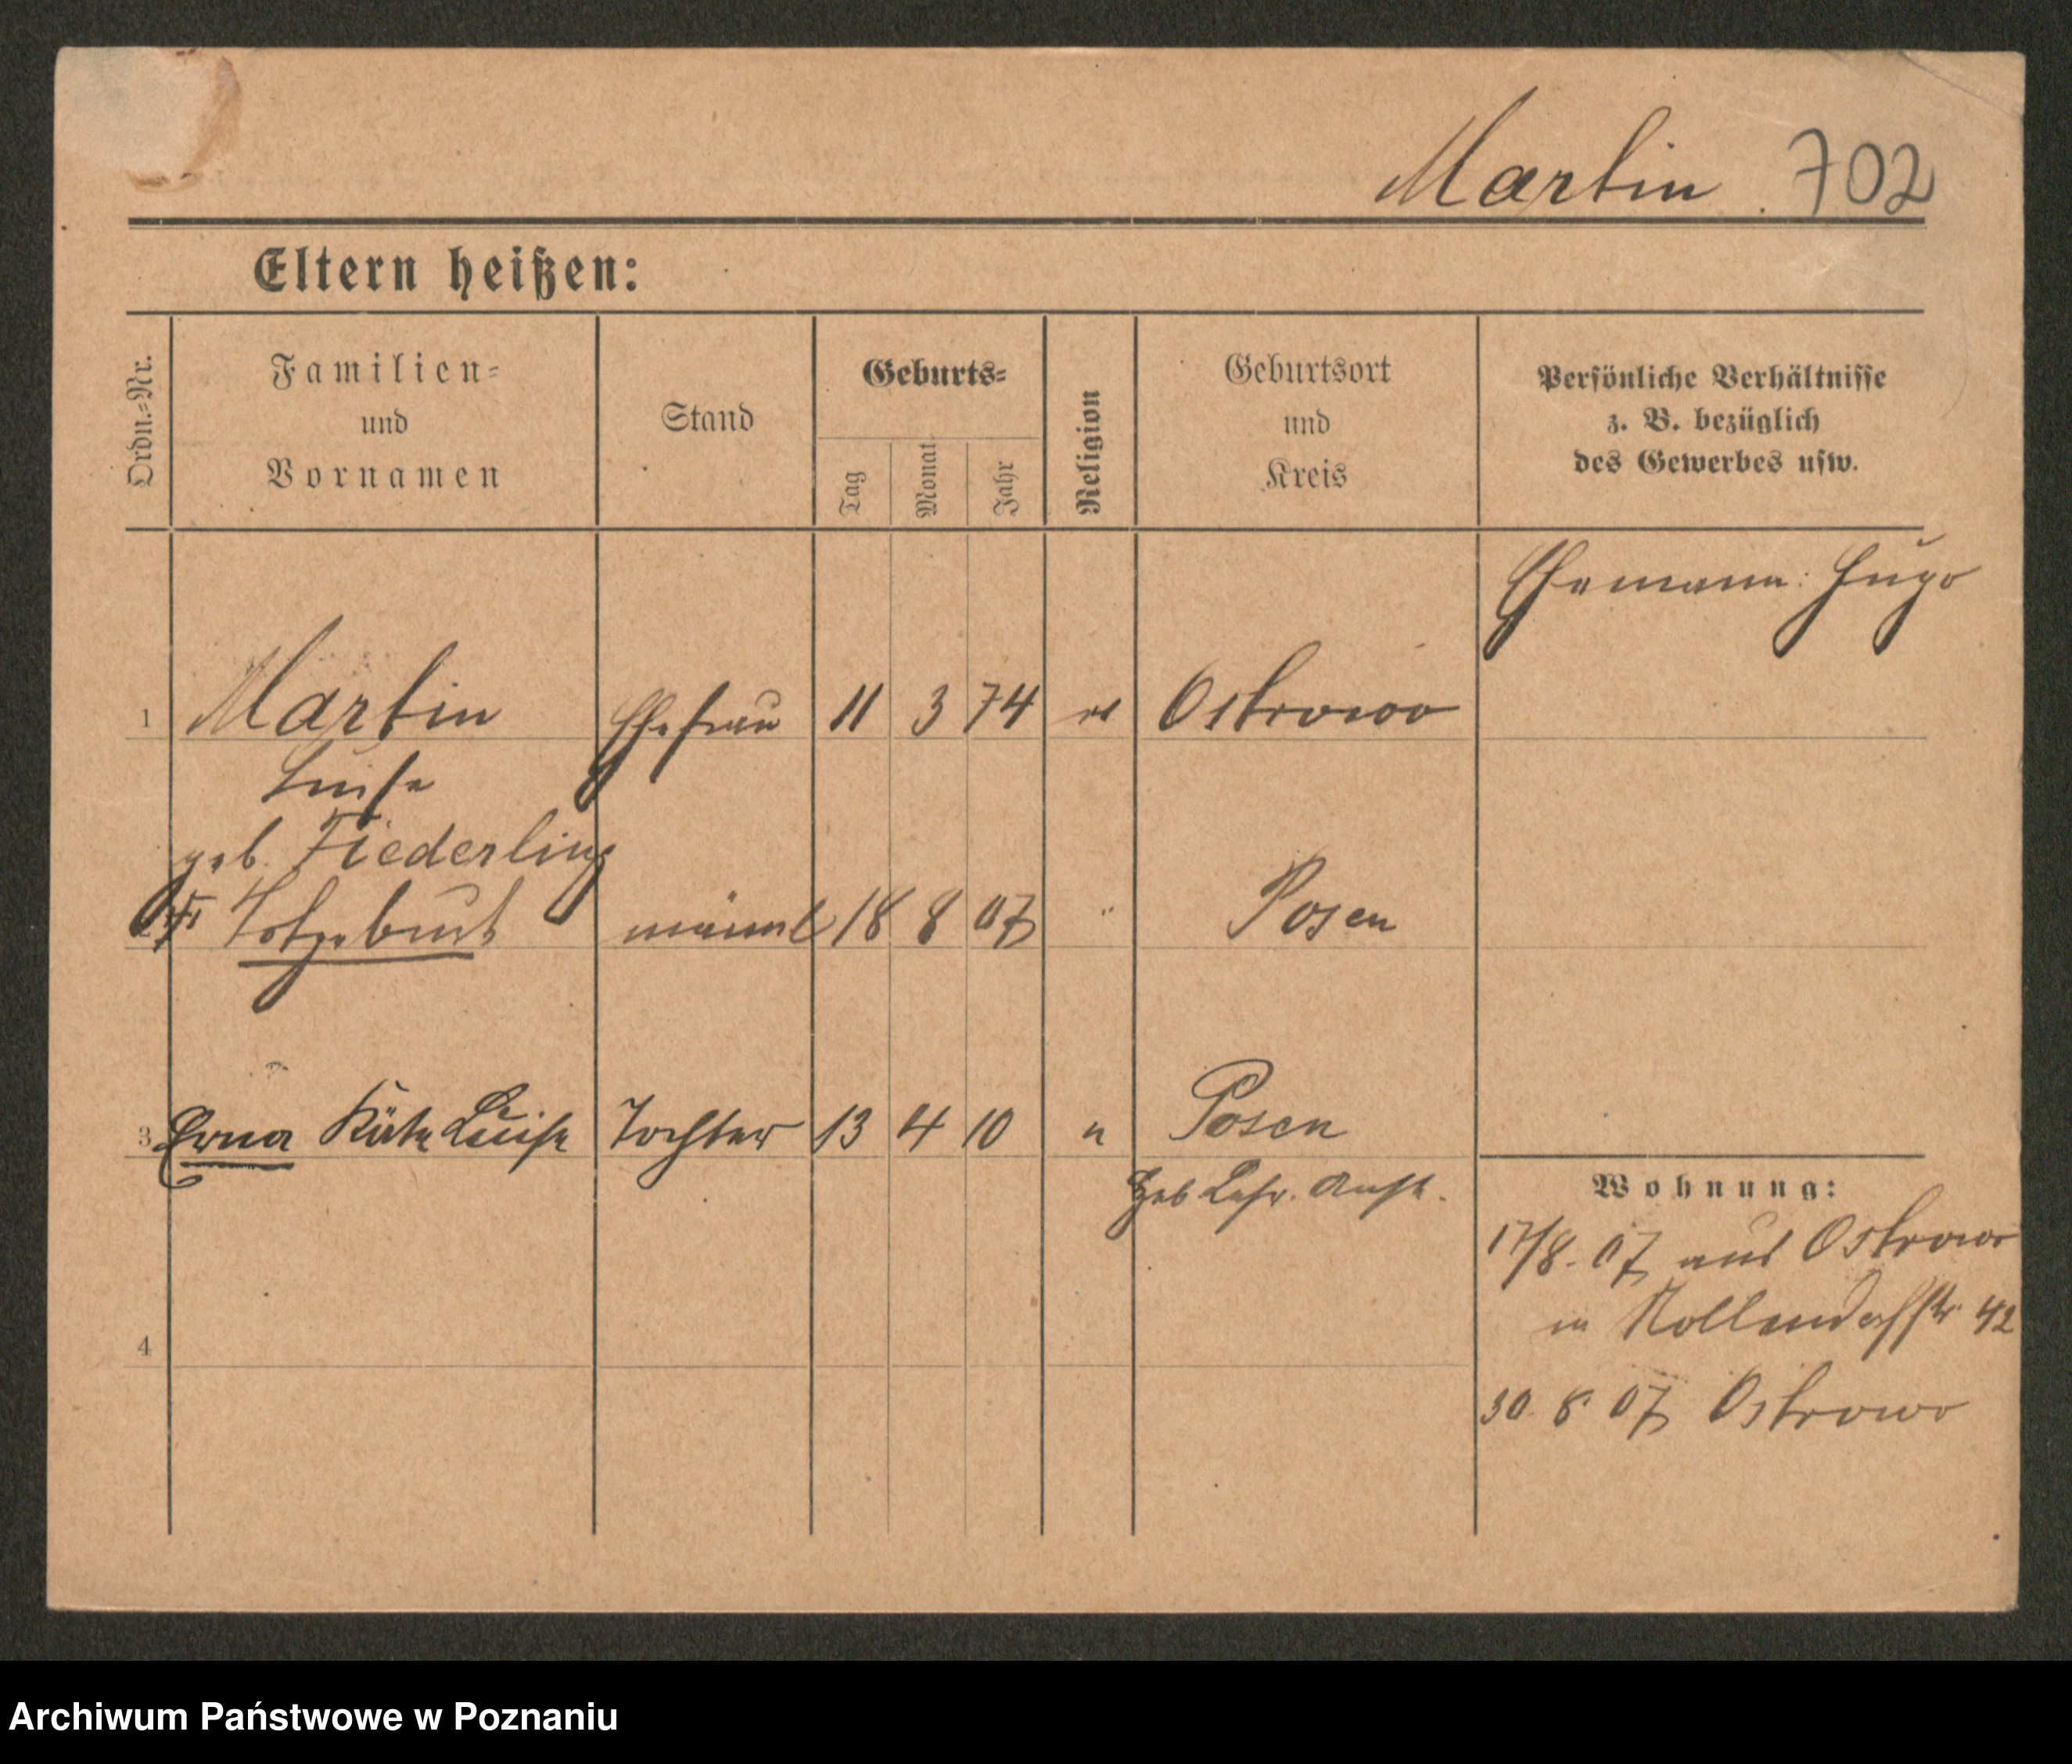 Martin 702
Eltern heißen:
Ordn.-Nr.
Familien-
und
Vornamen
Stand
Geburts-
Tag
Monat
Jahr
Religion
Geburtsort
und
Kreis
Persönliche Verhältnisse
z. B. bezüglich
des Gewerbes usw.
Ehemann: Hugo
1 Martin Ehefrau 11 3 74 Ostrowo
Luise
geb. Fiederling
Totgeburt männl 18 8 07 " Posen
3 Erna Käte Luise Tochter 13 4 10 Posen
Heb Lehr. Anst.
Wohnung:
17/8. 07 aus Ostrowo
in Nollendorfstr. 42
30. 8 07 Ostrowo
4
Archiwum Państwowe w Poznaniu